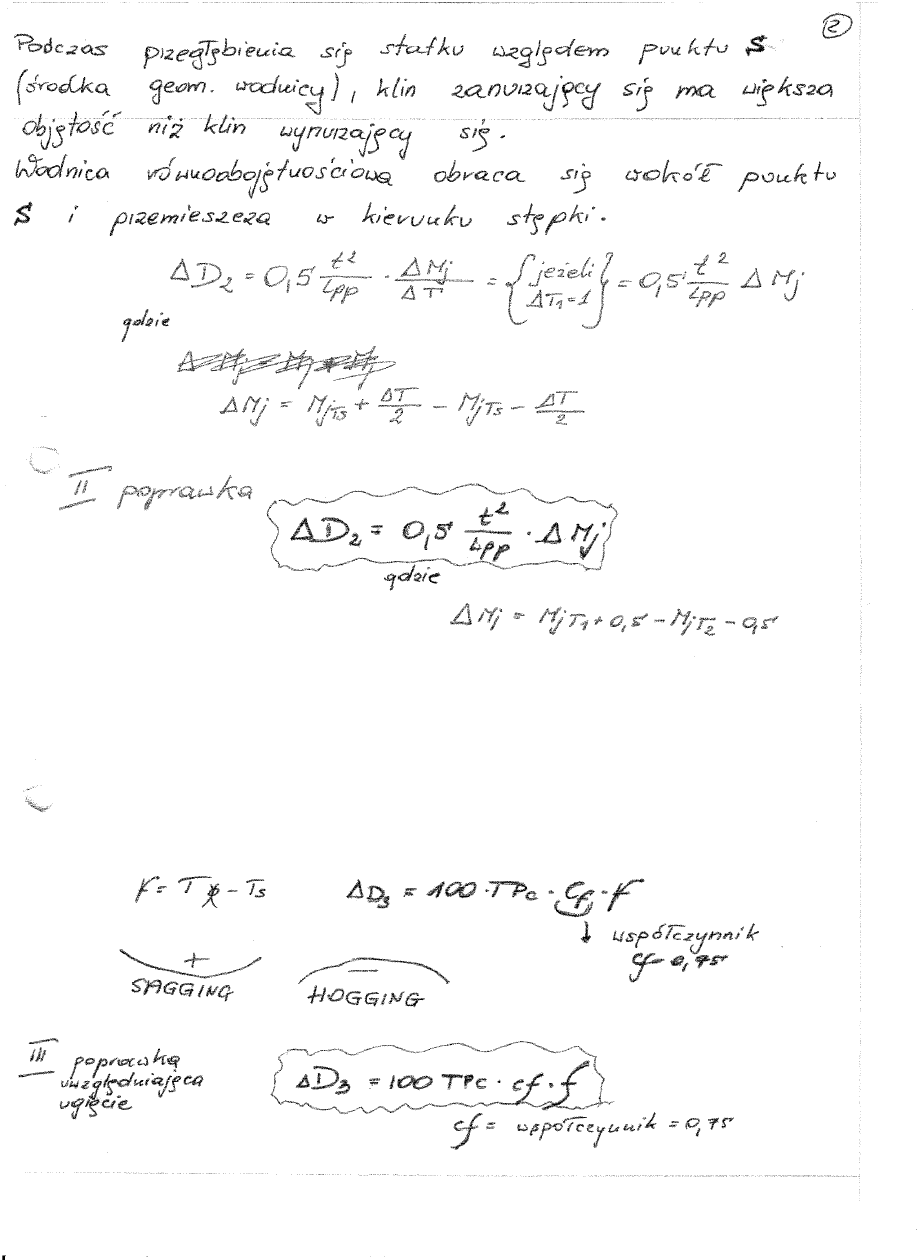 2
Podczas przegłębienia się statku względem punktu S
(środka geom. wodnicy), klin zanurzający się ma większa
objętość niż klin wynurzający się.
Wodnica równoobojętnościowa obraca się wokół punktu
S i przemieszcza w kierunku stępki.
ΔD₂ = 0,5 t²/Lpp · ΔMj/ΔT = {jeżeli ΔT₁=1} = 0,5 t²/Lpp ΔMj
gdzie
ΔMj = MjTs + ΔT/2 − MjTs − ΔT/2
II poprawka
ΔD₂ = 0,5 t²/Lpp · ΔMj
gdzie
ΔMj = MjT₁ + 0,5 − MjT₂ − 0,5
f = T − Ts ΔD₃ = 100 · TPc · Cf · f
↓ współczynnik
cf = 0,75
+ −
SAGGING HOGGING
III poprawka
uwzględniająca
ugięcie
ΔD₃ = 100 TPc · cf · f
cf = współczynnik = 0,75